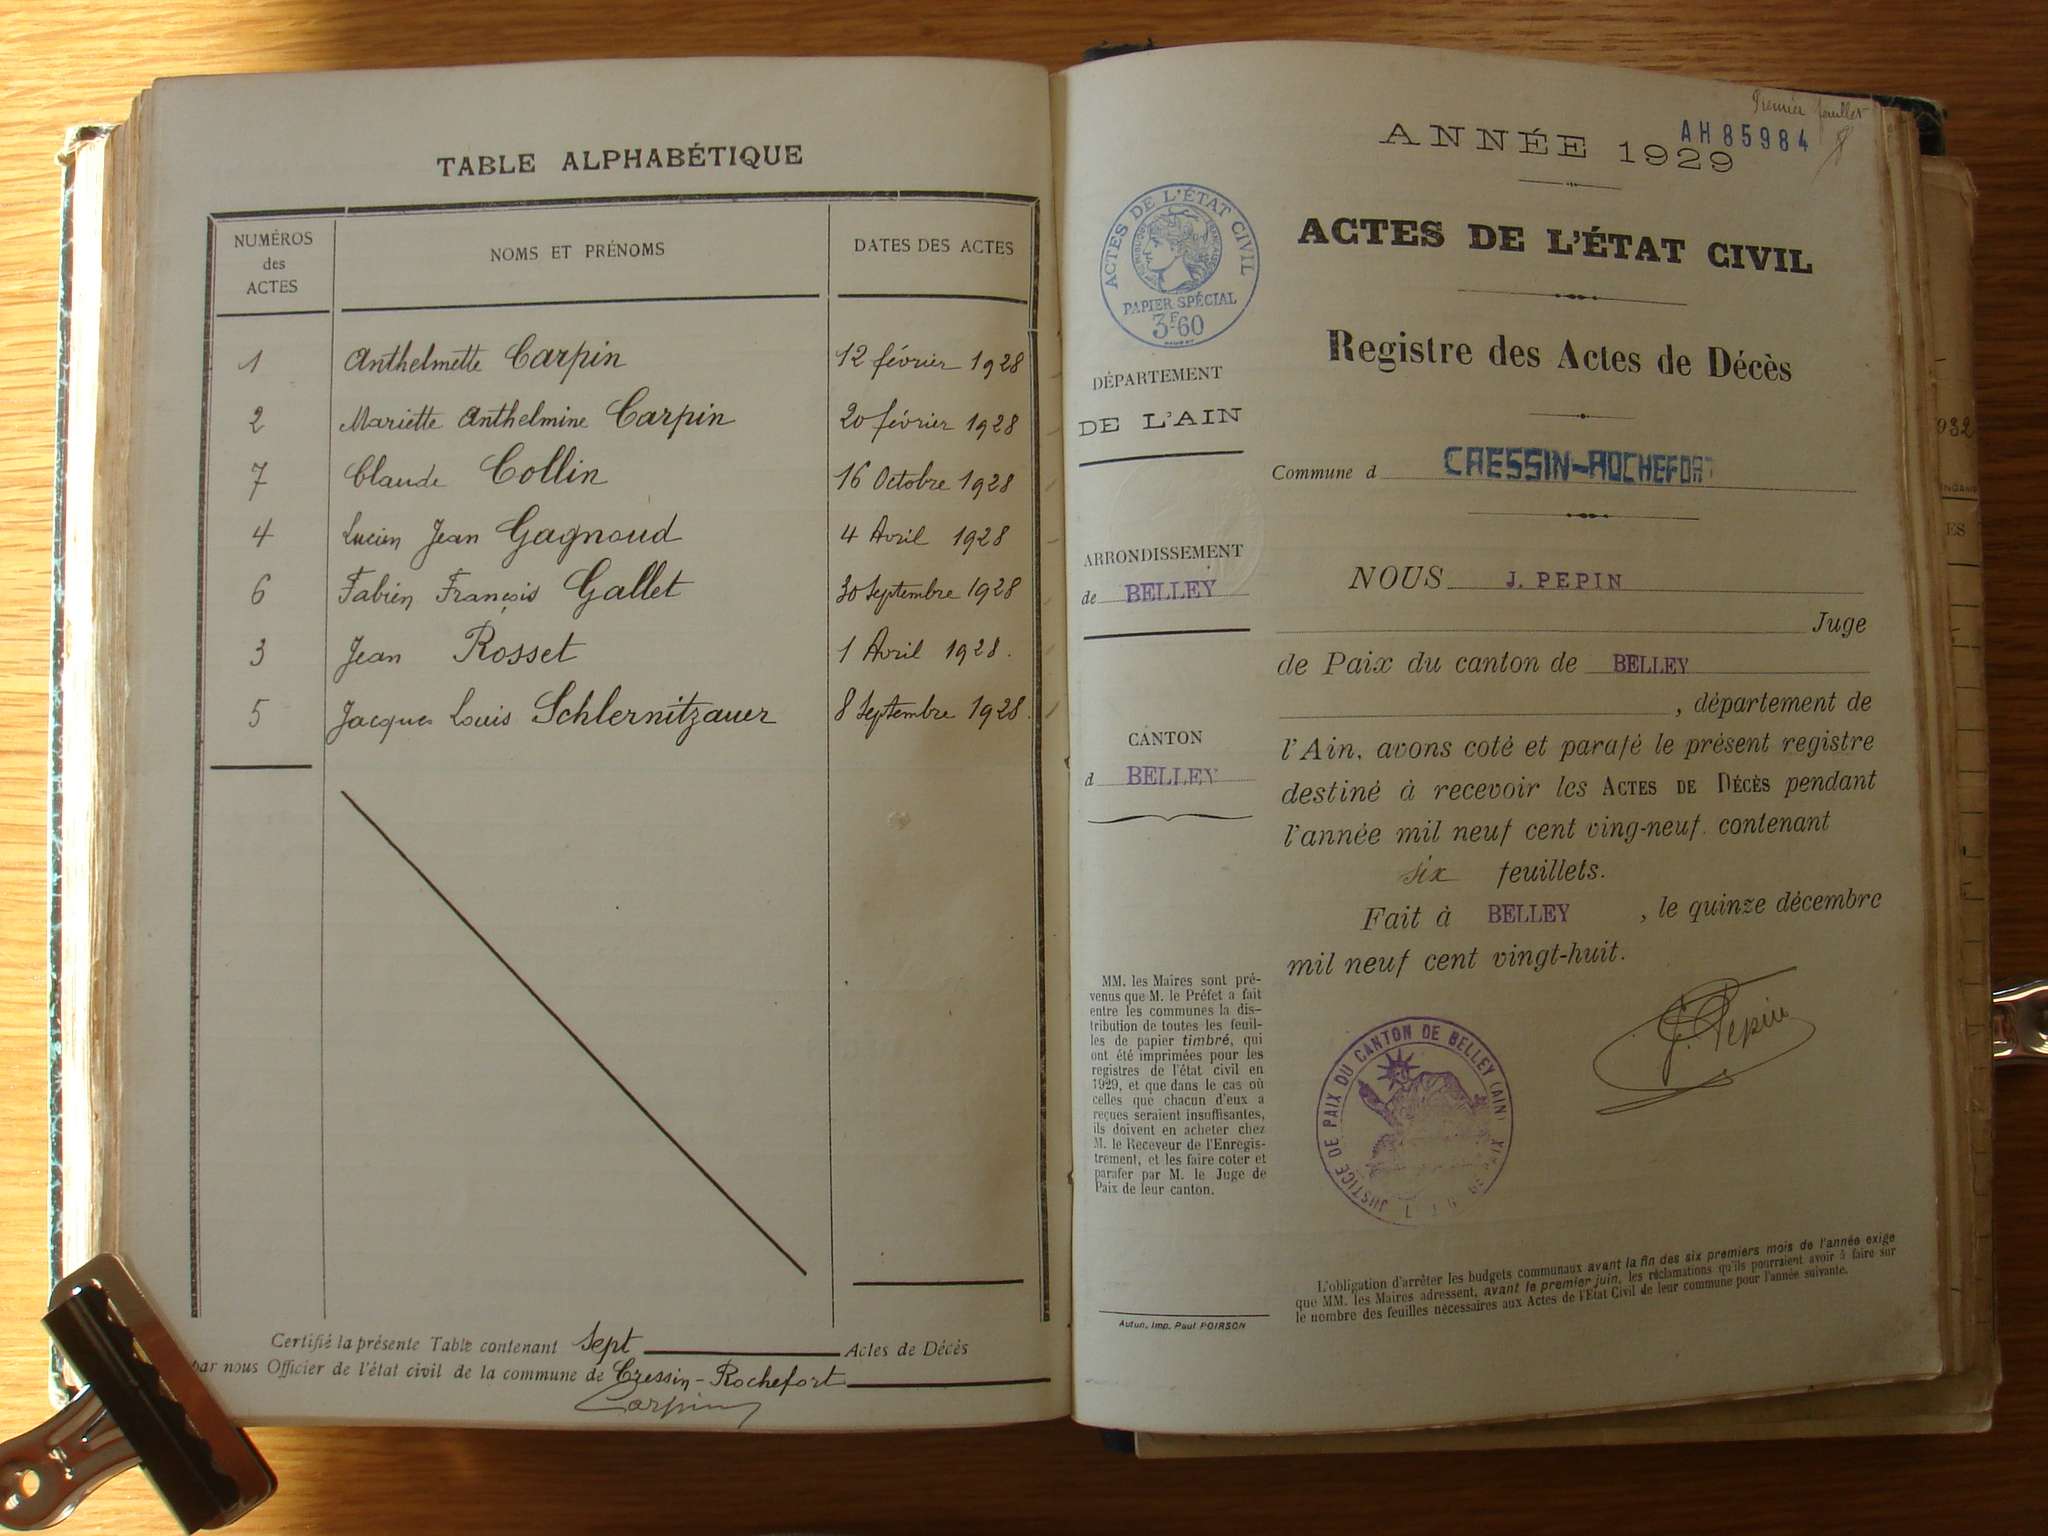 TABLE ALPHABÉTIQUE
NUMÉROS des ACTES
NOMS ET PRÉNOMS
DATES DES ACTES
1 Anthelmette Carpin 12 février 1928
2 Mariette Anthelmine Carpin 20 février 1928
7 Claude Collin 16 Octobre 1928
4 Lucien Jean Gagnoud 4 Avril 1928
6 Fabien François Gallet 30 Septembre 1928
3 Jean Rosset 1 Avril 1928.
5 Jacques Louis Schlernitzauer 8 Septembre 1928.
Certifié la présente Table contenant sept Actes de Décès
par nous Officier de l'état civil de la commune de Cressin-Rochefort
Carpin
Premier feuillet
AH 85984
ANNÉE 1929
ACTES DE L'ÉTAT CIVIL
PAPIER SPÉCIAL
3F60
ACTES DE L'ÉTAT CIVIL
Registre des Actes de Décès
DÉPARTEMENT
DE L'AIN
Commune d CRESSIN-ROCHEFORT
ARRONDISSEMENT
de BELLEY
CANTON
d BELLEY
NOUS J. PEPIN
Juge
de Paix du canton de BELLEY
, département de
l'Ain, avons coté et parafé le présent registre
destiné à recevoir les ACTES DE DÉCÈS pendant
l'année mil neuf cent ving-neuf, contenant
six feuillets.
Fait à BELLEY , le quinze décembre
mil neuf cent vingt-huit.
J. Pepin
MM. les Maires sont pré-
venus que M. le Préfet a fait
entre les communes la dis-
tribution de toutes les feuil-
les de papier timbré, qui
ont été imprimées pour les
registres de l'état civil en
1929, et que dans le cas où
celles que chacun d'eux a
reçues seraient insuffisantes,
ils doivent en acheter chez
M. le Receveur de l'Enregis-
trement, et les faire coter et
parafer par M. le Juge de
Paix de leur canton.
JUSTICE DE PAIX DU CANTON DE BELLEY (AIN)
L'obligation d'arrêter les budgets communaux avant la fin des six premiers mois de l'année exige
que MM. les Maires adressent, avant le premier juin, les réclamations qu'ils pourraient avoir à faire sur
le nombre des feuilles nécessaires aux Actes de l'Etat Civil de leur commune pour l'année suivante.
Autun, Imp. Paul POIRSON
932
ES